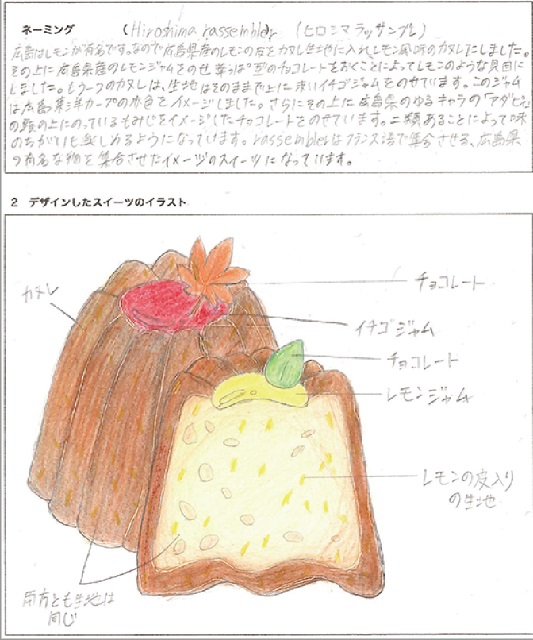 ネーミング (Hiroshima rassembler (ヒロシマ ラッサンブレ)
広島はレモンが有名です。なので広島県産のレモンの皮をカヌレ生地に入れレモン風味のカヌレにしました。
その上に広島県産のレモンジャムをのせ葉っぱ型のチョコレートをおくことによってレモンのような見目に
しました。もう一つのカヌレは、生地はそのままで上に赤いイチゴジャムをのせています。このジャム
は広島東洋カープの赤色をイメージしました。さらにその上に広島県のゆるキャラの
の頭の上にのっているもみじをイメージしたチョコレートをのせています。二種類あることによって味
のちがいも楽しめるようになっています。rassemblerはフランス語で集合させる、広島県
の有名な物を集合させたイメージのスイーツになっています。
2 デザインしたスイーツのイラスト
カヌレ
チョコレート
イチゴジャム
チョコレート
レモンジャム
レモンの皮入り
の生地
両方とも生地は
同じ